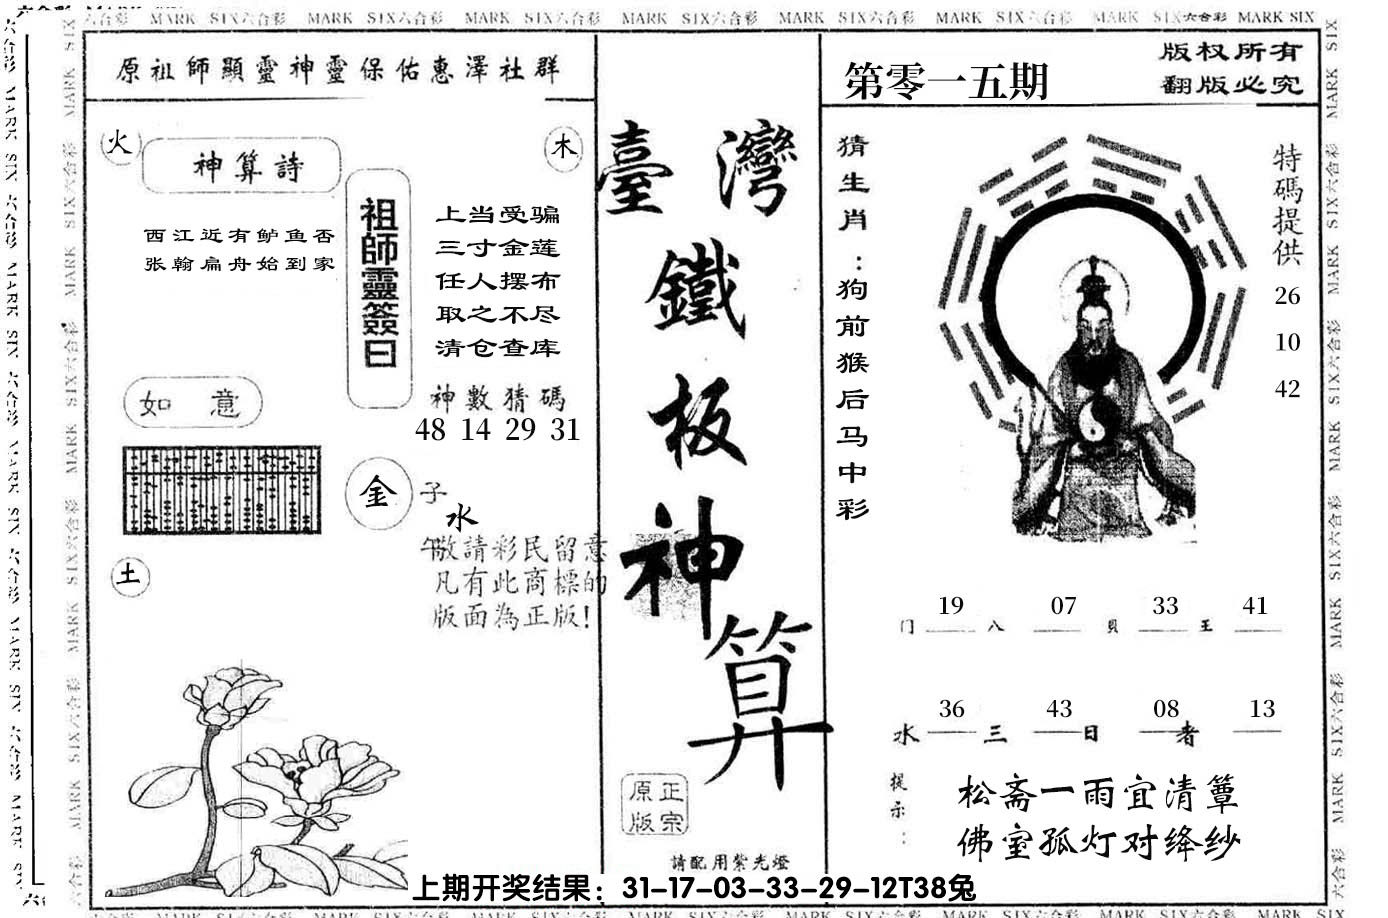 MARK SIX六合彩 MARK SIX六合彩 MARK SIX六合彩 MARK SIX六合彩 MARK SIX六合彩 MARK SIX六合彩 MARK SIX六合彩 MARK SIX
原祖師顯靈神靈保佑惠澤社群
火
神算詩
木
西江近有鲈鱼否
张翰扁舟始到家
祖師靈簽曰
上当受骗
三寸金莲
任人摆布
取之不尽
清仓查库
神數猜碼
48 14 29 31
如意
金
子
水
午
敬請彩民留意
凡有此商標的
版面為正版!
土
臺灣
鐵
板
神
算
正宗
原版
請配用紫光燈
第零一五期
版权所有
翻版必究
猜生肖:狗前猴后马中彩
特碼提供
26
10
42
门 19 八 07 貝 33 王 41
水 36 三 43 日 08 者 13
提示:
松斋一雨宜清簟
佛室孤灯对绛纱
上期开奖结果：31-17-03-33-29-12T38兔